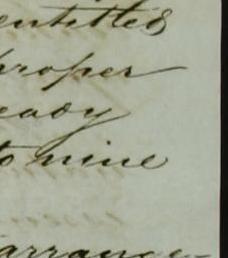 entitled
proper
eady
to mine
arrange-